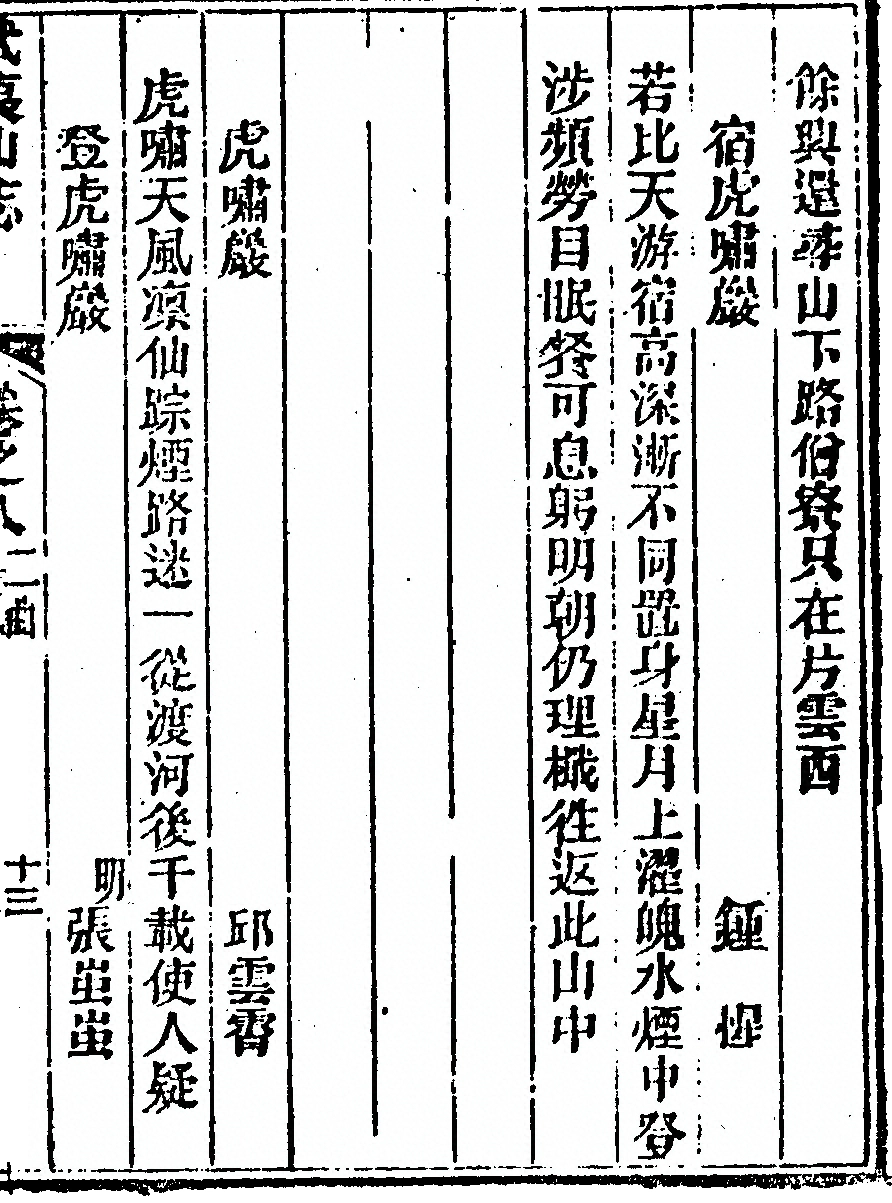 餘興還尋山下路僧寮只在片雲西
宿虎嘯巖 鍾惺
若比天游宿高深漸不同置身星月上濯魄水煙中登
涉頻勞目眠餐可息躬明朝仍理檝徃返此山中
虎嘯巖 邱雲霄
虎嘯天風凛仙踪煙路迷一從渡河後千載使人疑
登虎嘯巖 明張蚩蚩
武夷山志 卷之八 二曲 十三